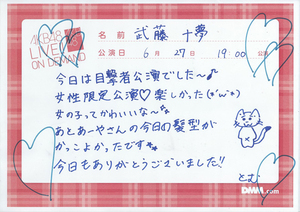 AKB48
LIVE!!
ON DEMAND
名前 武藤 十夢
公演日 6月27日 19:00 公演
今日は目撃者公演でした〜♪
女性限定公演♡楽しかった(*'ω'*)
女の子ってかわいいな〜
あとあーやさんの今日の髪型が
かっこよかったです
今日もありがとうございました!!
とむ
DMM.com